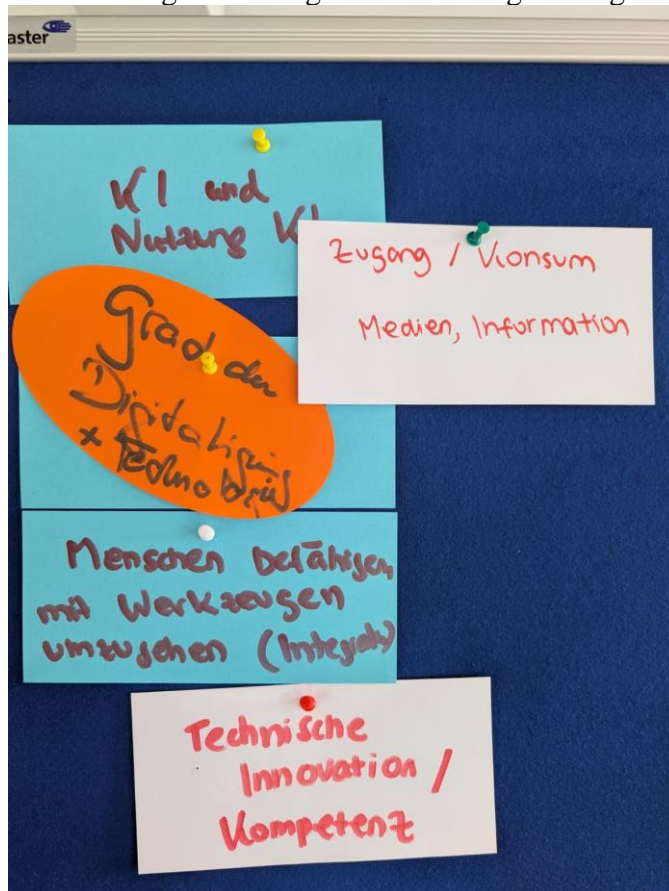 aster
KI und
Nutzung KI
Zugang / Konsum
Medien, Information
Grad der
+ Technologie
Menschen befähigen,
mit Werkzeugen
umzugehen (Integrativ)
Technische
Innovation /
Kompetenz